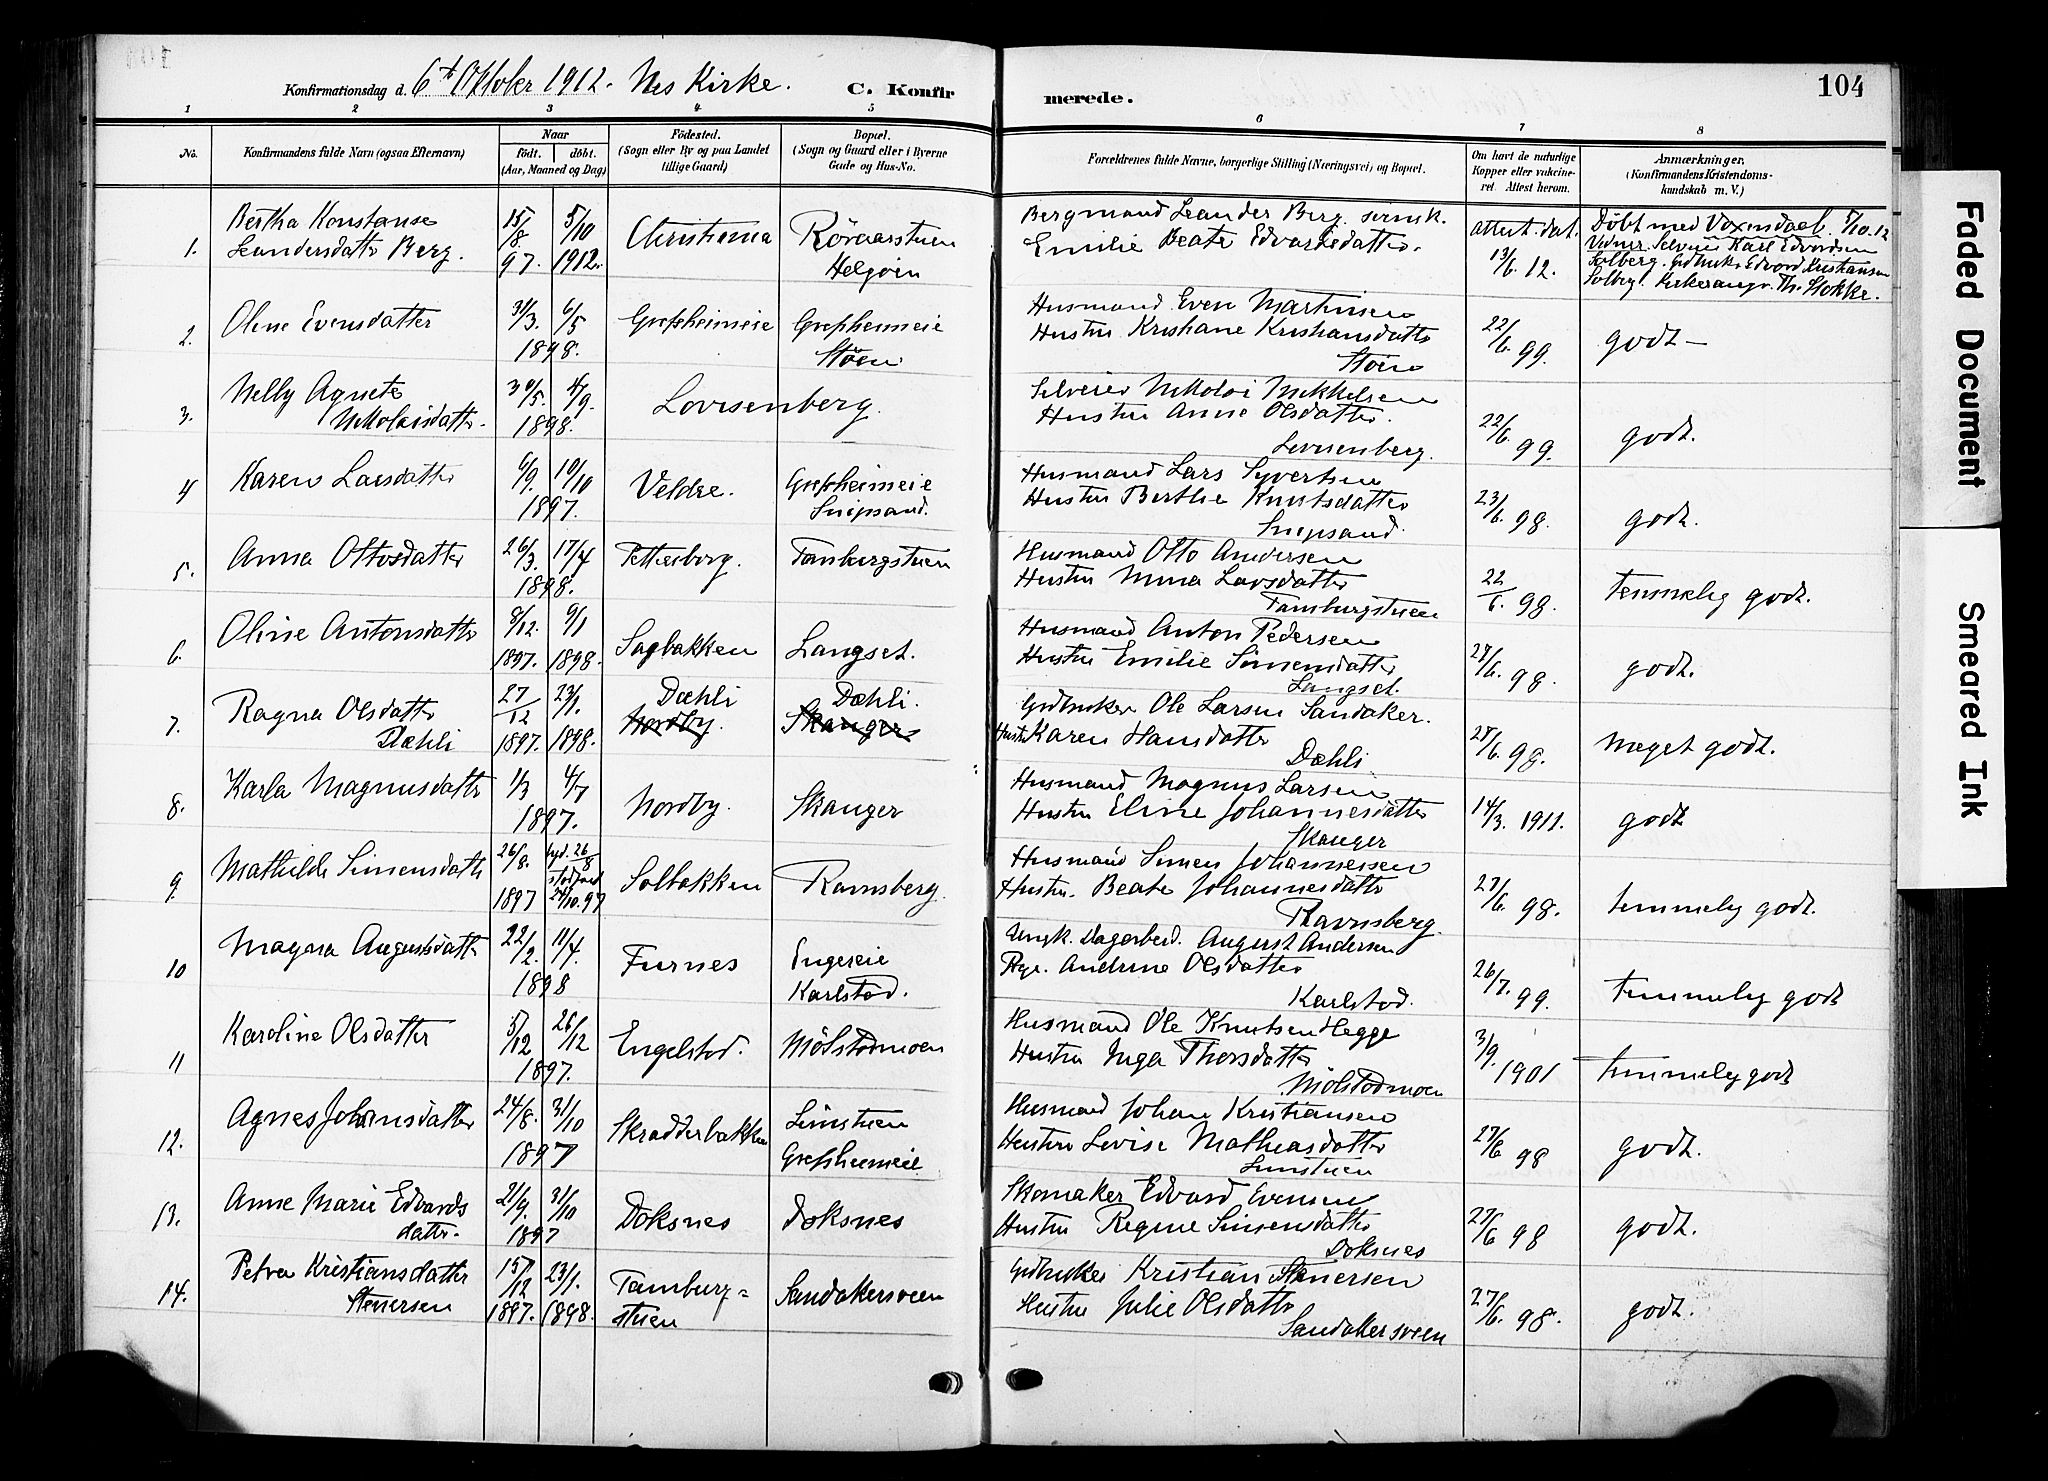 104
Konfirmationsdag d. 6te Oktober 1912. Nes Kirke. C. Konfir merede.
1 2 3 4 5 6 7 8
No.
Konfirmandens fulde Navn (ogsaa Efternavn)
Naar
født. døbt.
(Aar, Maaned og Dag)
Fødested.
(Sogn eller By og paa Landet
tillige Gaard)
Bopæl.
(Sogn og Gaard eller i Byerne
Gade og Hus-No.
Forældrenes fulde Navne, borgerlige Stilling (Næringsvei) og Bopæl.
Om havt de naturlige
Kopper eller vakcine-
ret. Attest herom.
Anmærkninger.
(Konfirmandens Kristendoms-
kundskab m. V.)
Bertha Konstanse 15/8. 5/10 Christiania Røraarstuen Bergmand Leander Berg. svensk. attest. dat. Døbt med Voxendaab. 5/10.12
1. Leandersdatter Berg. 97. 1912. Helgøen Emilie Beate Edvardsdatter. 13/6. 12. Vidner. Selveier Karl Edvardsen
Solberg. Gdbruker Edvard Kristiansen
Solberg. Kirkesanger Th. Stokke.
2. Oline Evensdatter 31/3. 6/5 Grefsheimeie Grefsheimeie Husmand Even Martinsen
1898. Støen Hustru Kristiane Kristiansdatter 22/6. 99. godt —
Støen
3. Nelly Agnete 30/5. 4/9. Lovisenberg. Selveier Nikolai Mikkelsen
Nikolaisdatter. 1898. Hustru Anne Olsdatter. 22/6. 99. godt.
Lovisenberg.
4 Karen Larsdatter 6/9. 10/10 Veldre. Grefsheimeie Husmand Lars Syvertsen
1897. Snipsand. Hustru Berthe Knutsdatter 23/6. 98. godt.
Snipsand.
5. Anna Ottosdatter 26/3. 17/4 Petterborg. Tamburgstuen Husmand Otto Andersen
1898. Hustru Mina Larsdatter 22/6. 98. temmelig godt.
Tamburgstuen
6. Oline Antonsdatter 8/12. 9/1 Sagbakken Langset. Husmand Anton Pedersen
1897. 1898. Hustru Emilie Simensdatter 27/6. 98. godt.
Langset.
7. Ragna Olsdatter 27/12 23/1. Dæhli Dæhli. Gdbruker Ole Larsen Sandaker.
Dæhli 1897. 1898. Nordby. Skanger Hustr Karen Hansdatter 28/6. 98. meget godt.
Dæhli
8. Karla Magnusdatter 1/3 4/7 Nordby. Skanger Husmand Magnus Larsen
1897. Hustru Eline Johannesdatter 14/3. 1911. godt
Skanger
9. Mathilde Simensdatter 26/8. hjd. 26/8 Solbakken Ramsberg. Husmand Simen Johannessen
1897 stadfæst 24/10. 97 Hustru. Beate Johannesdatter 27/6. 98. temmelig godt.
Ravnsberg.
10 Magna Augustsdatter 22/2. 11/4. Furnes Ingereie Ungk. Dagarbeid. August Andersen
1898 Karlstad. Pige. Andrine Olsdatter 26/7. 99. temmelig godt
Karlstad.
11 Karoline Olsdatter 5/12 26/12 Engelstad. Mølstadmoen Husmand Ole Knutsen Hegge
1897. Hustru Inga Thorsdatter 3/9. 1901 temmelig godt
Mølstadmoen
12. Agnes Johansdatter 24/8. 31/10 Skradderbakken Limstuen Husmand Johan Kristiansen
1897 Grefsheimeie Hustru Lovise Mathiasdatter 27/6 98 godt.
Limstuen
13. Anne Marie Edvards 21/9. 31/10 Doksnes Doksnes Skomaker Edvard Evensen
datter. 1897 Hustru Regine Simensdatter 27/6 98 godt.
Doksnes
14. Petra Kristiansdatter 15/12 23/1. Tamburg= Sandakersveen Gdbruker Kristian Stenersen
Stenersen 1897. 1898. stuen Hustru Julie Olsdatter 27/6. 98. godt.
Sandakersveen
Faded Document
Smeared Ink